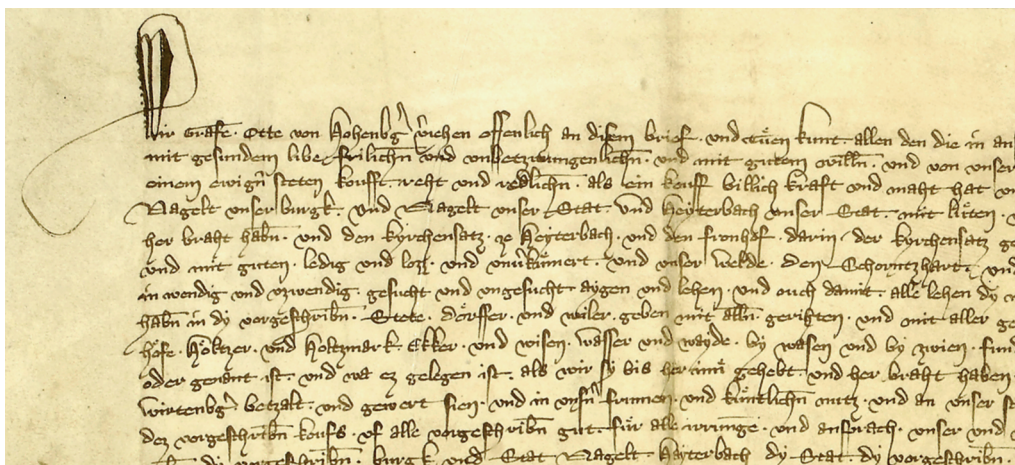 Wir Grafe Otte von Hohenbg' v'iehen offenlich an disem brief und tuͤen kunt allen den die in an
mit gesundem libe frilichn und unbetzwungenlichn und mit gutem willn und von unser
einem ewign steten kouffe reht und redlichn als ein kouff billich kraft und maht hat
Nagelt unser burgk und Nagelt unser Stat und Heyterbach unser Stat mit luͤten
her braht habn und den kyrchensatz ze Heyterbach und den fronhof darin der kyrchensatz
und mit guten ledig und loz und unv'kuͤmert und unser welde den Schorntzhart und
inwendig und uzwendig gesucht und ungesucht aygen und lehen und ouch damit alle lehen dy
habn in dy vorgeschribn Stete doͤrffer und wiler geben mit alln gerihten und mit aller
hoͤfe Hoͤltzer und Holtzmark Ekker und wisen wasser und wayde by wasen und by zwien
oder genant ist und wa ez gelegen ist als wir sy bis her gehebt und her braht haben
wirtenbg' betzalt und gewert sien und in unsn frumen und kuͤntlichn nutz und an unser
dez vorgeschribn koufs uf alle vorgeschribn gut fuͤr alle irrunge und ansprach unser und
dy vorgeschribn burgk und Stat Nagelt Heyterbach dy Stat dy vorgeschribn